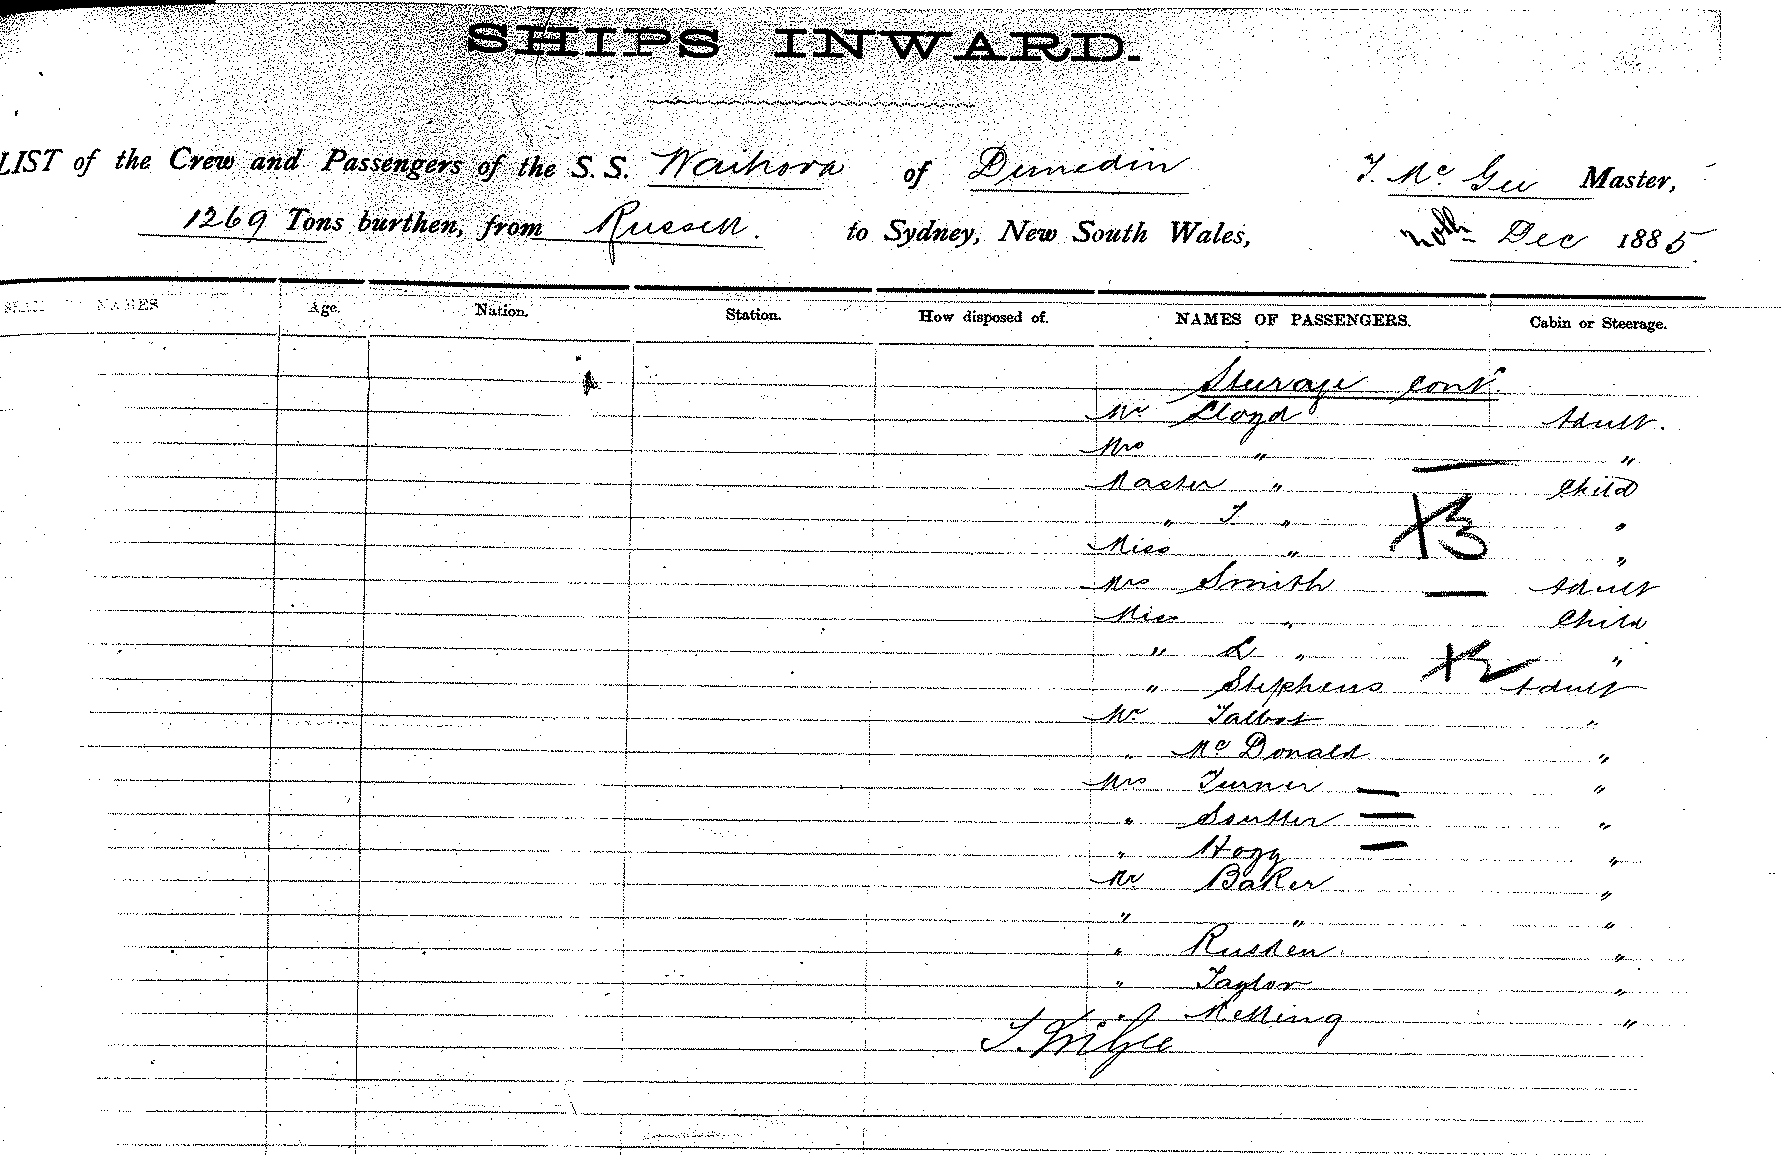 SHIPS INWARD.
LIST of the Crew and Passengers of the S.S. Waihora of Dunedin T. Mc. Gee Master,
1269 Tons burthen, from Russell. to Sydney, New South Wales, Dec 1885
NAMES Age. Nation. Station. How disposed of. NAMES OF PASSENGERS. Cabin or Steerage.
Steerage cont.
Mr Lloyd Adult.
Mrs " "
Master " Child
" T " "
X3
Miss " "
Mrs Smith Adult
Miss " Child
" L " "
X2
" Stephens Adult
Mr Talbot "
" McDonald "
Mrs Turner "
" Soutter "
" Hogg "
Mr Baker "
" " "
" Rusden "
" Taylor "
" Melling "
T. McGee